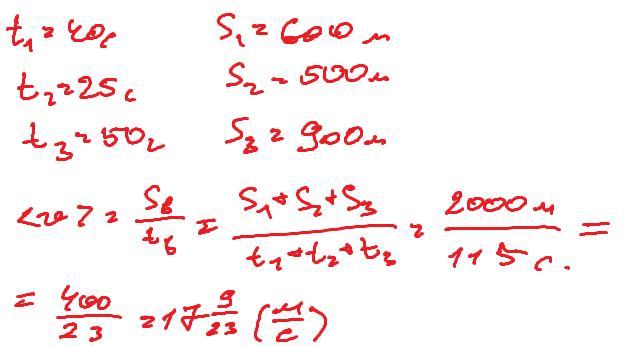 t₁ = 40c S₁ = 600 м
t₂ = 25c S₂ = 500м
t₃ = 50c S₃ = 900м
<v> = Sв/tв = (S₁+S₂+S₃)/(t₁+t₂+t₃) = 2000м/115c. =
= 400/23 = 17 9/23 (м/c)